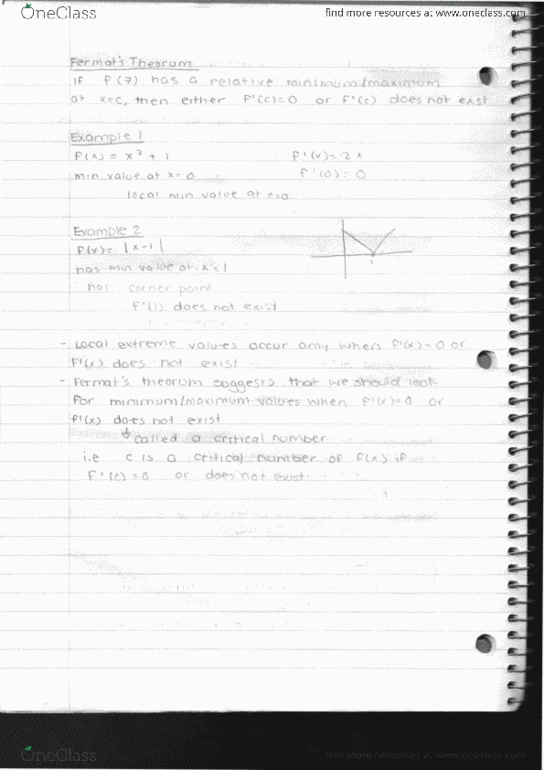 OneClass
find more resources at www.oneclass.com
Fermat's Theorum
If f(7) has a relative minimum/maximum
at x=c, then either f'(c)=0 or f'(c) does not exist
Example 1
f(x) = x² + 1 f'(x)=2x
min value at x=0 f'(0)=0
local min value at x=0
Example 2
f(x)= |x-1|
has min value at x=1
has corner point
f'(1) does not exist
- Local extreme values occur only when f'(x)=0 or
f'(x) does not exist
- Fermat's theorum suggests that we should look
for minimum/maximum values when f'(x)=0 or
f'(x) does not exist
↳ called a critical number
i.e c is a critical number of f(x) if
f'(c)=0 or does not exist
OneClass
find more resources at www.oneclass.com